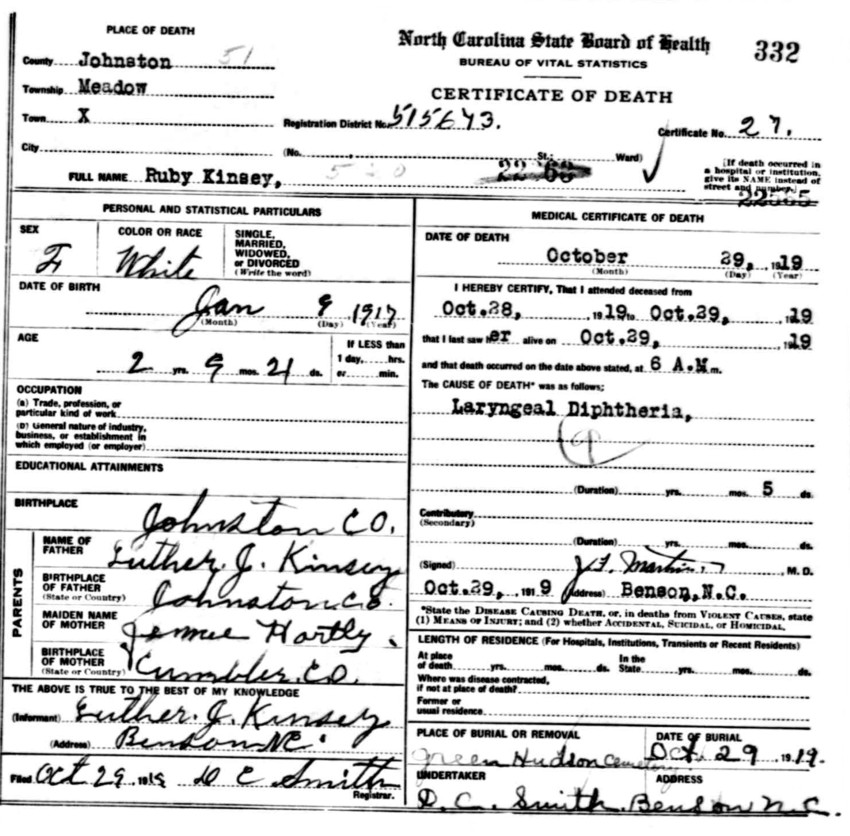 PLACE OF DEATH
County Johnston 51
Township Meadow
Town X
City
North Carolina State Board of Health 332
BUREAU OF VITAL STATISTICS
CERTIFICATE OF DEATH
Registration District No. 515673. Certificate No. 27.
(No. , St.; Ward)
[If death occurred in a hospital or institution, give its NAME instead of street and number.]
FULL NAME Ruby Kinsey,
PERSONAL AND STATISTICAL PARTICULARS
SEX F
COLOR OR RACE White
SINGLE, MARRIED, WIDOWED, or DIVORCED (Write the word)
DATE OF BIRTH Jan 9 1917
(Month) (Day) (Year)
AGE 2 yrs. 9 mos. 21 ds.
If LESS than 1 day, hrs. or min.
OCCUPATION
(a) Trade, profession, or particular kind of work
(b) General nature of industry, business, or establishment in which employed (or employer)
EDUCATIONAL ATTAINMENTS
BIRTHPLACE Johnston CO.
PARENTS
NAME OF FATHER Luther. J. Kinsey
BIRTHPLACE OF FATHER (State or Country) Johnston CO.
MAIDEN NAME OF MOTHER Jennie Hartly.
BIRTHPLACE OF MOTHER (State or Country) Cumbler. CO.
THE ABOVE IS TRUE TO THE BEST OF MY KNOWLEDGE
(Informant) Luther. J. Kinsey
(Address) Benson NC.
Filed Oct 29 1919 D C Smith
Registrar.
MEDICAL CERTIFICATE OF DEATH
DATE OF DEATH October 29, 1919
(Month) (Day) (Year)
I HEREBY CERTIFY, That I attended deceased from
Oct.28, 1919 to Oct.29, 1919
that I last saw her alive on Oct.29, 1919
and that death occurred on the date above stated, at 6 A.M m.
The CAUSE OF DEATH* was as follows:
Laryngeal Diphtheria,
9
(Duration) yrs. mos. 5 ds.
Contributory
(Secondary)
(Duration) yrs. mos. ds.
(Signed) J.F. Martin, M. D.
Oct.29, 1919 (Address) Benson, N.C.
*State the DISEASE CAUSING DEATH, or, in deaths from VIOLENT CAUSES, state
(1) MEANS OF INJURY; and (2) whether ACCIDENTAL, SUICIDAL, or HOMICIDAL.
LENGTH OF RESIDENCE (For Hospitals, Institutions, Transients or Recent Residents)
At place of death yrs. mos. ds. In the State yrs. mos. ds.
Where was disease contracted, if not at place of death?
Former or usual residence
PLACE OF BURIAL OR REMOVAL Green Hudson Cemetery
DATE OF BURIAL Oct 29 1919.
UNDERTAKER D. C. Smith.
ADDRESS Benson N.C.